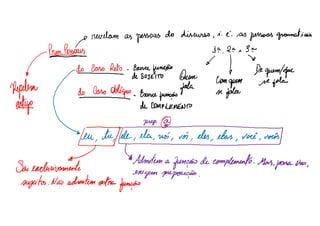 revelam as pessoas do discurso, i. é. as pessoas gramaticais
1ª, 2ª e 3ª
Pron. Pessoais
do Caso Reto - Exerce função de SUJEITO
Quem fala
Com quem se fala
De quem/que se fala
do Caso Oblíquo - Exerce função de COMPLEMENTO
Repelem artigo
prep. a
eu, tu, ele, ela, nós, vós, eles, elas, você, vocês
São exclusivamente sujeitos. Não admitem outra função
Admitem a função de complemento. Mas, para isso, exigem preposição.